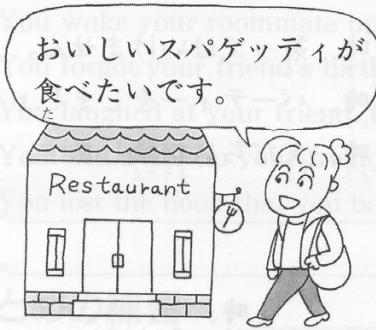 おいしいスパゲッティが
食べたいです。
た
Restaurant